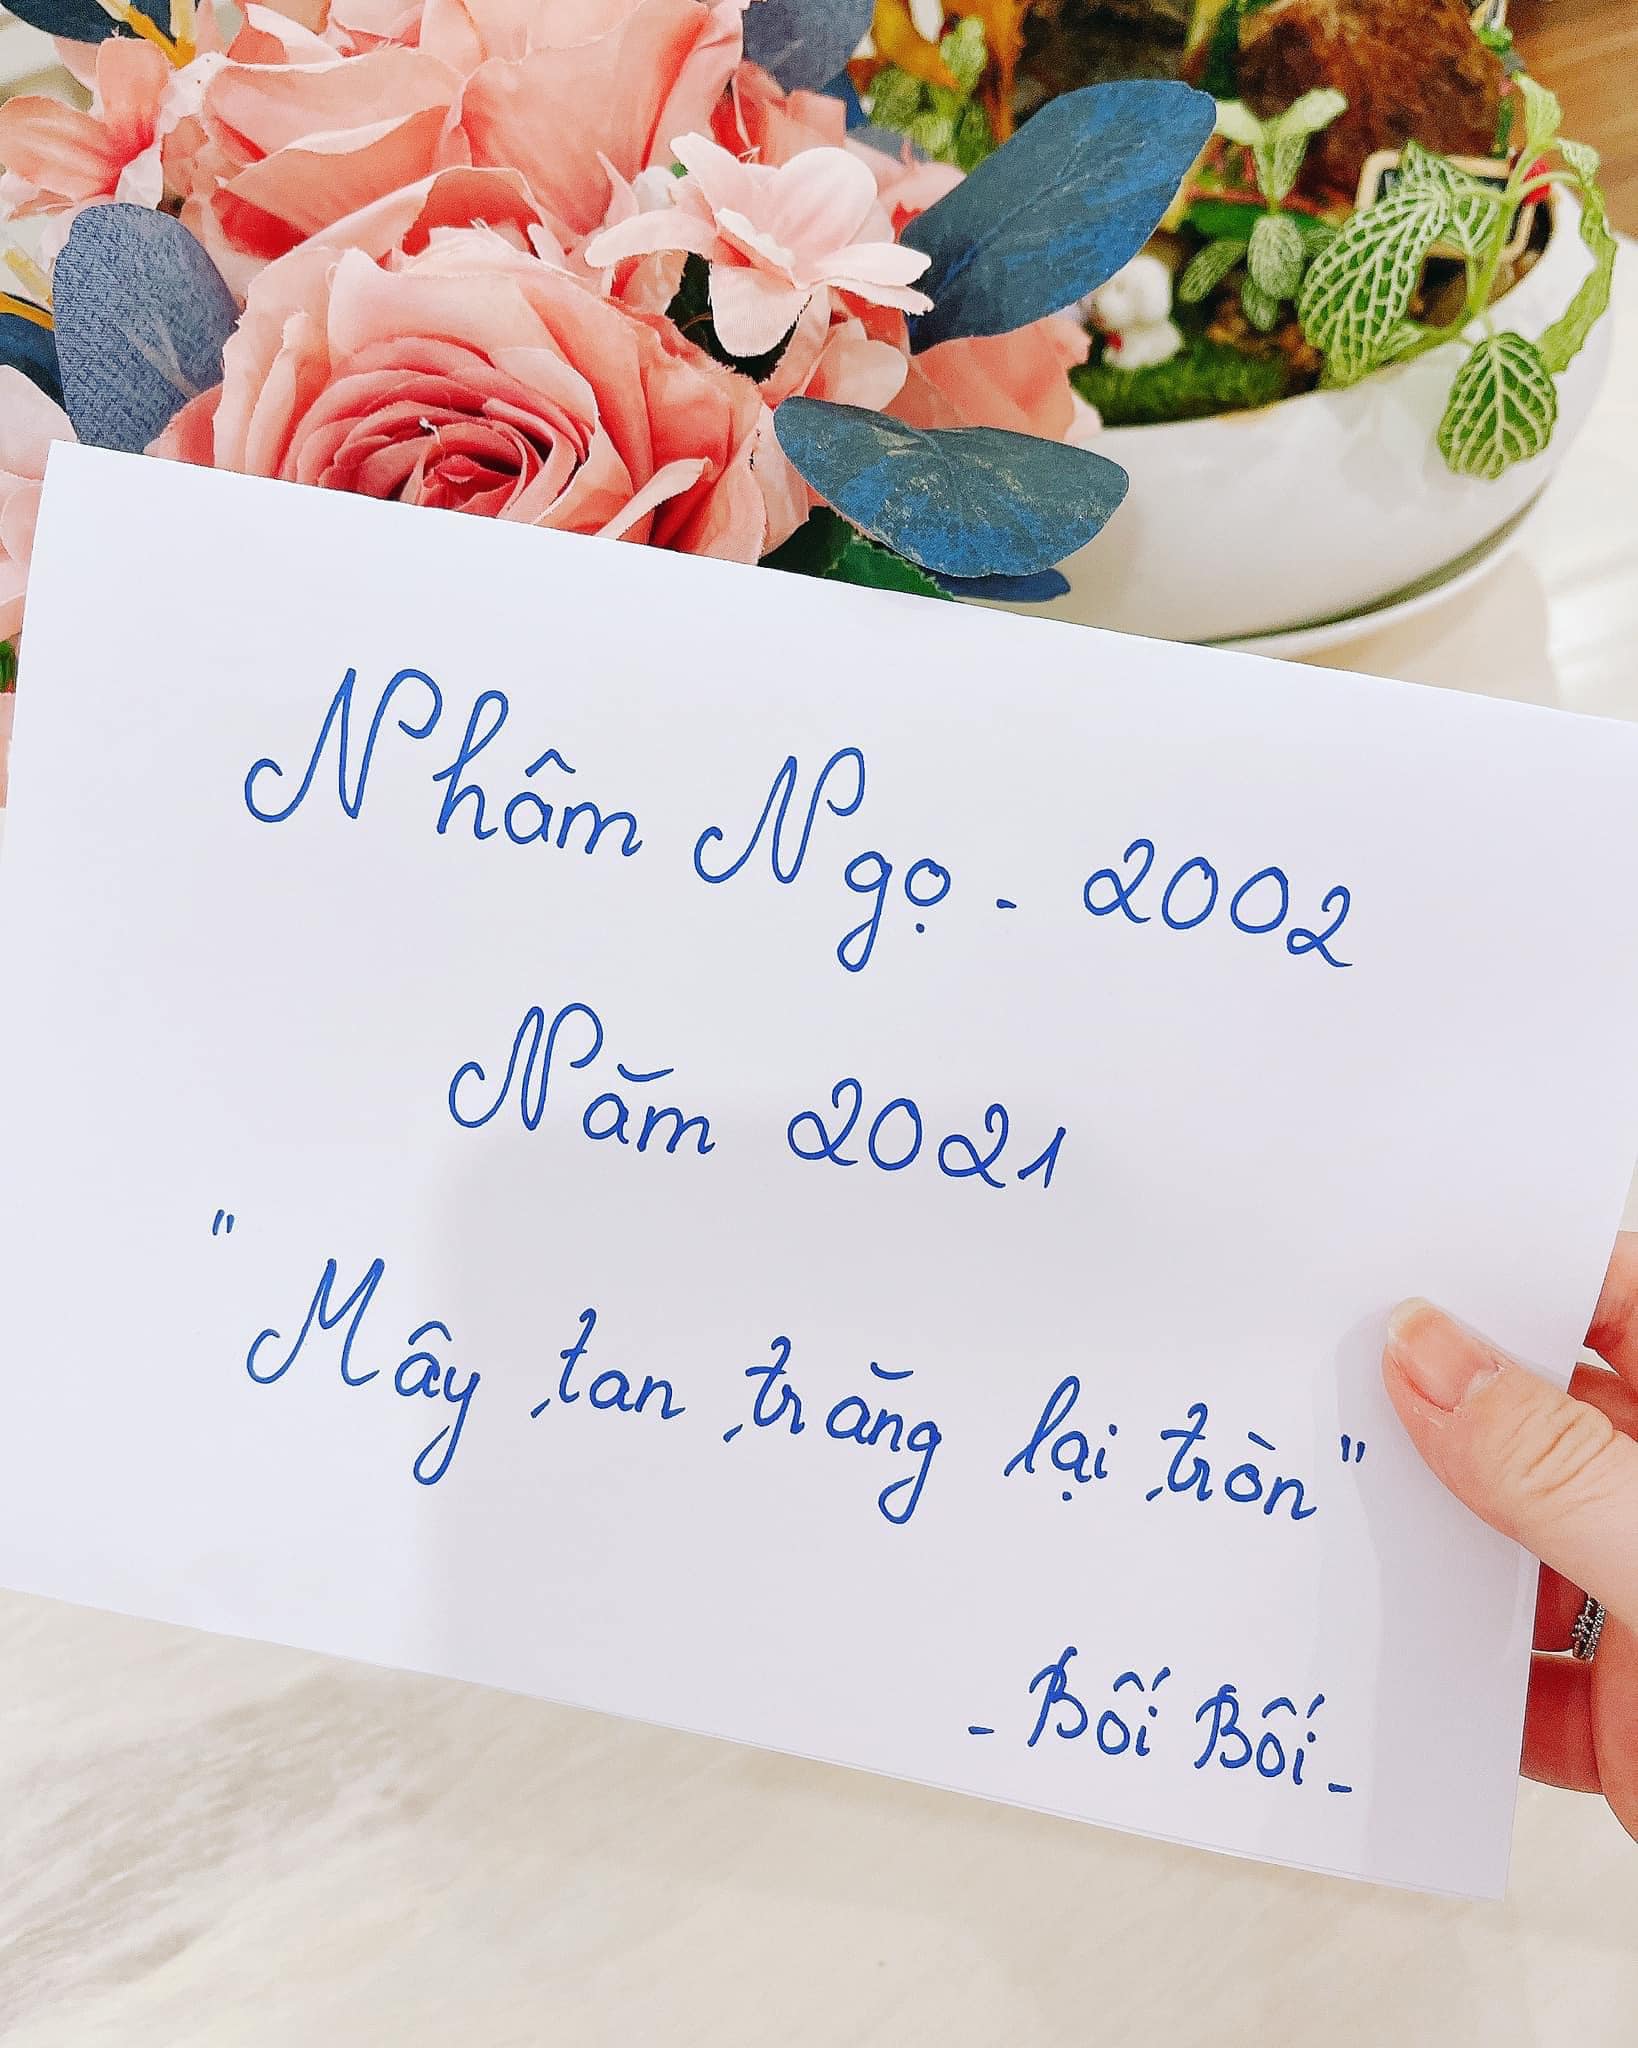 Nhâm Ngọ - 2002
Năm 2021
" Mây tan trăng lại tròn "
- Bối Bối -